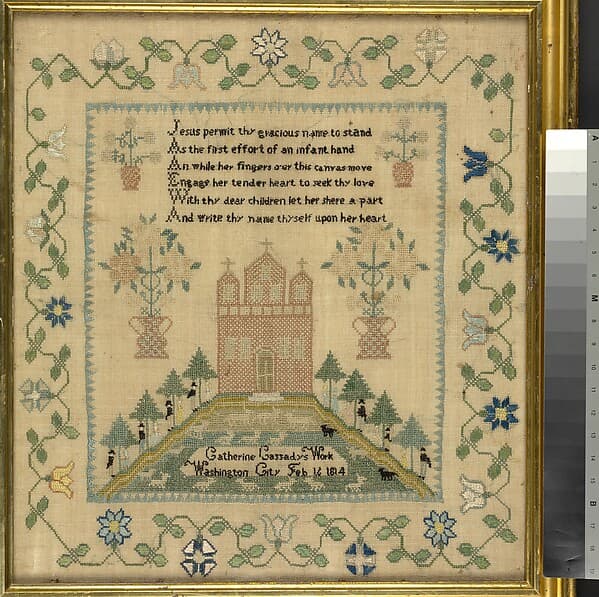 Jesus permit thy gracious name to stand
As the first effort of an infant hand
An while her fingers over this canvas move
Engage her tender heart to seek thy love
With thy dear children let her shere a part
And write thy name thyself upon her heart
Catherine Cassady's Work
Washington City Feb 16 1814